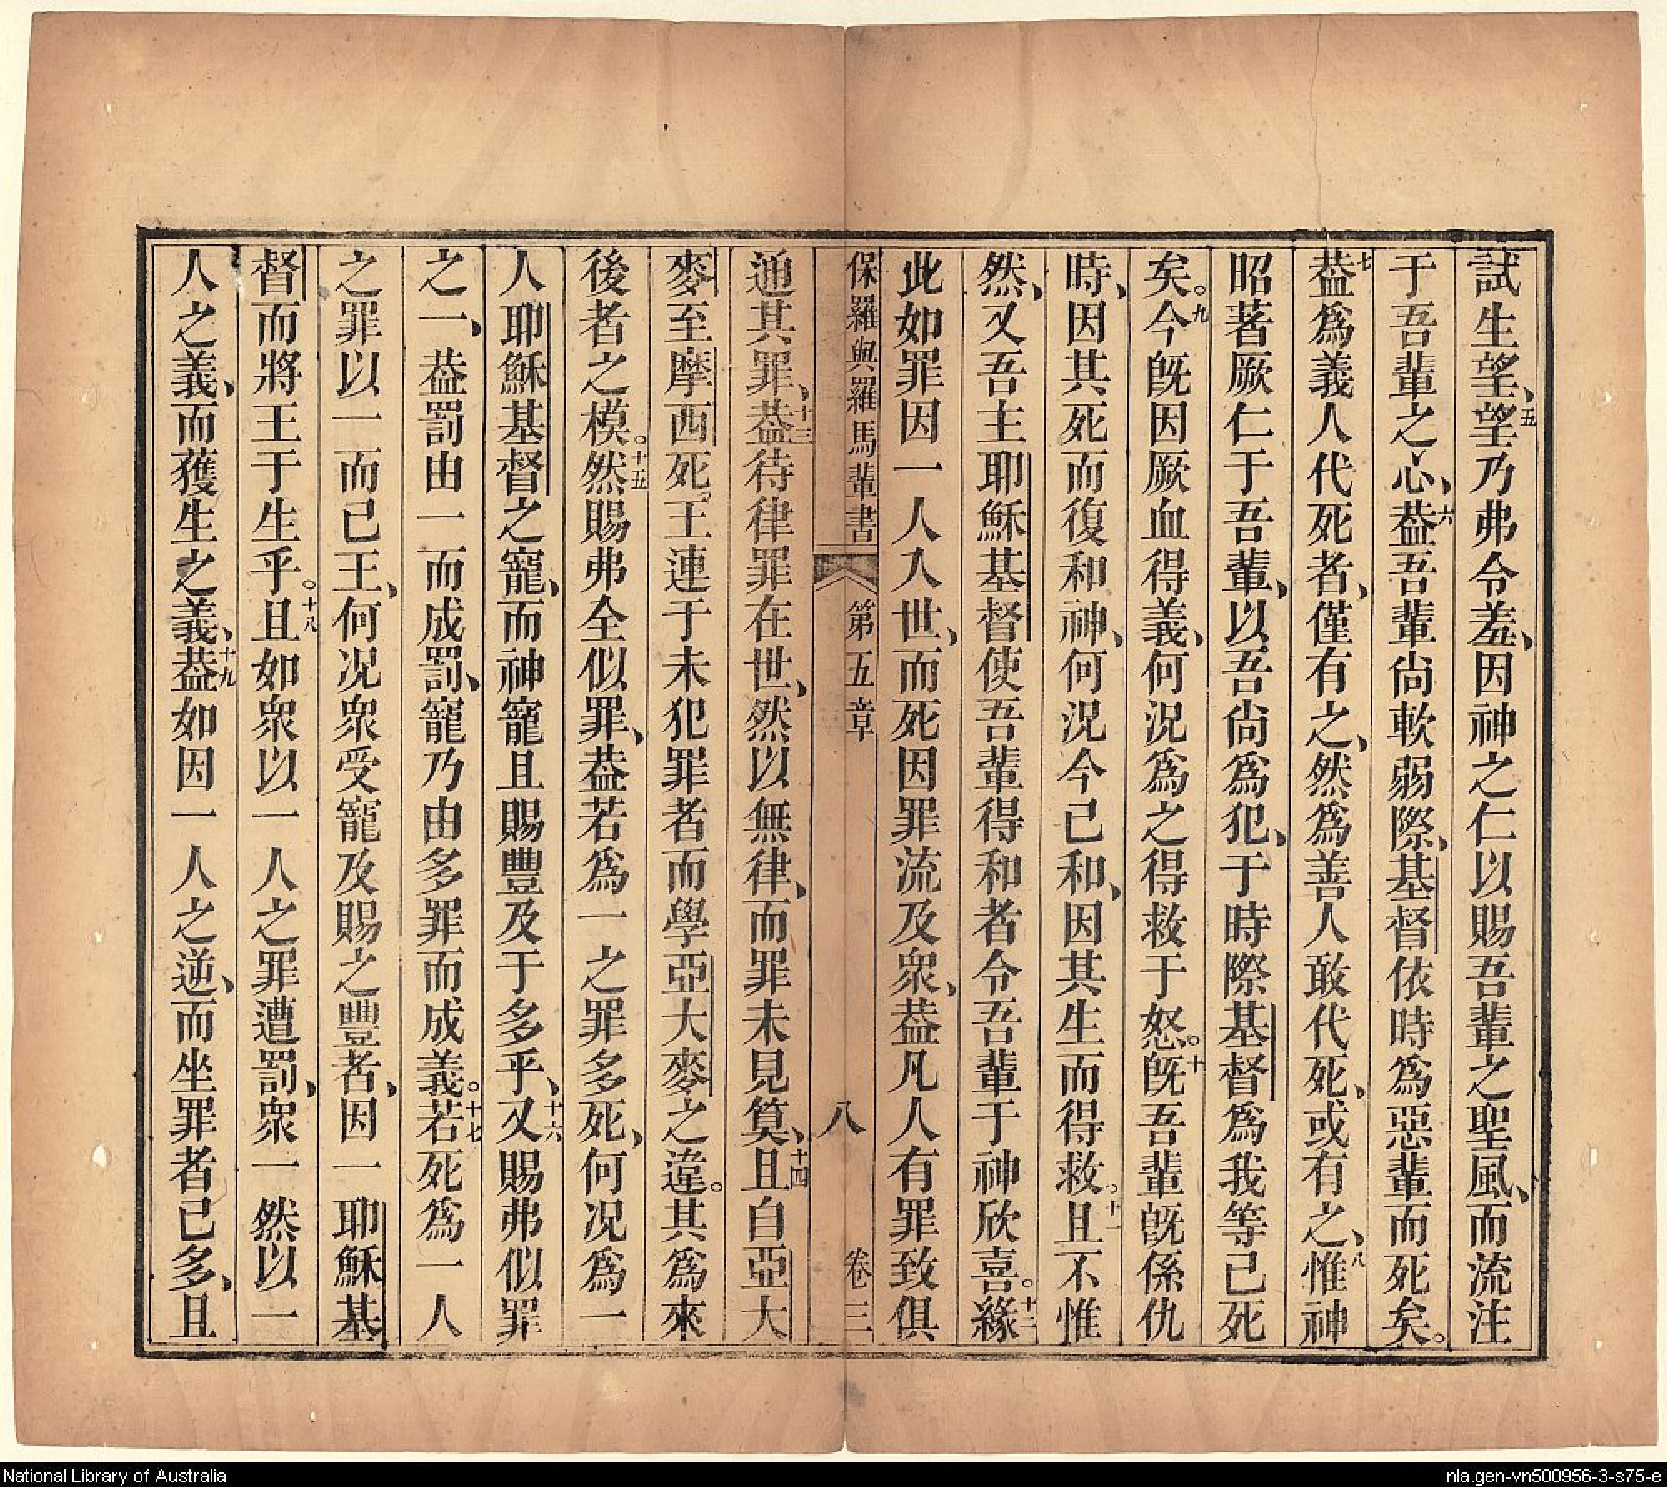 試生望、五望乃弗令羞、因神之仁以賜吾輩之聖風、而流注
于吾輩之心、六葢吾輩尙軟弱際、基督依時爲惡輩而死矣。
七葢爲義人代死者、僅有之、然爲善人敢代死、或有之、八惟神
昭著厥仁于吾輩、以吾尙爲犯、于時際基督爲我等已死
矣。九今旣因厥血得義、何况爲之得救于怒。十旣吾輩旣係仇
時、因其死而復和神、何况今已和、因其生而得救。十一且不惟
然、又吾主耶穌基督使吾輩得和者令吾輩于神欣喜。十二緣
此如罪因一人入世、而死因罪流及衆、葢凡人有罪致俱
保羅與羅馬輩書 第五章 八 卷三
通其罪、十三葢待律罪在世、然以無律、而罪未見筭、十四且自亞大
麥至摩西死王連于未犯罪者而學亞大麥之違。其爲來
後者之模。十五然賜弗全似罪、葢若爲一之罪多死、何况爲一
人耶穌基督之寵、而神寵且賜豐及于多乎、十六又賜弗似罪
之一、葢罰由一而成罰、寵乃由多罪而成義。十七若死爲一人
之罪以一而已王、何况衆受寵及賜之豐者、因一耶穌基
督而將王于生乎。十八且如衆以一人之罪遭罰、衆一然以一
人之義、而獲生之義、十九葢如因一人之逆、而坐罪者已多、且
National Library of Australia
nla.gen-vn500956-3-s75-e